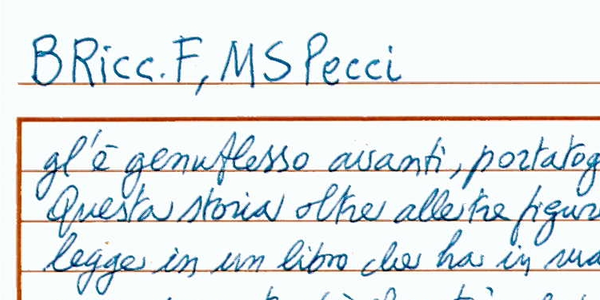 BRicc. F, MS Pecci
gl'è genuflesso avanti, portatog
Questa storia oltre alle tre figur
legge in un libro che ha in ma